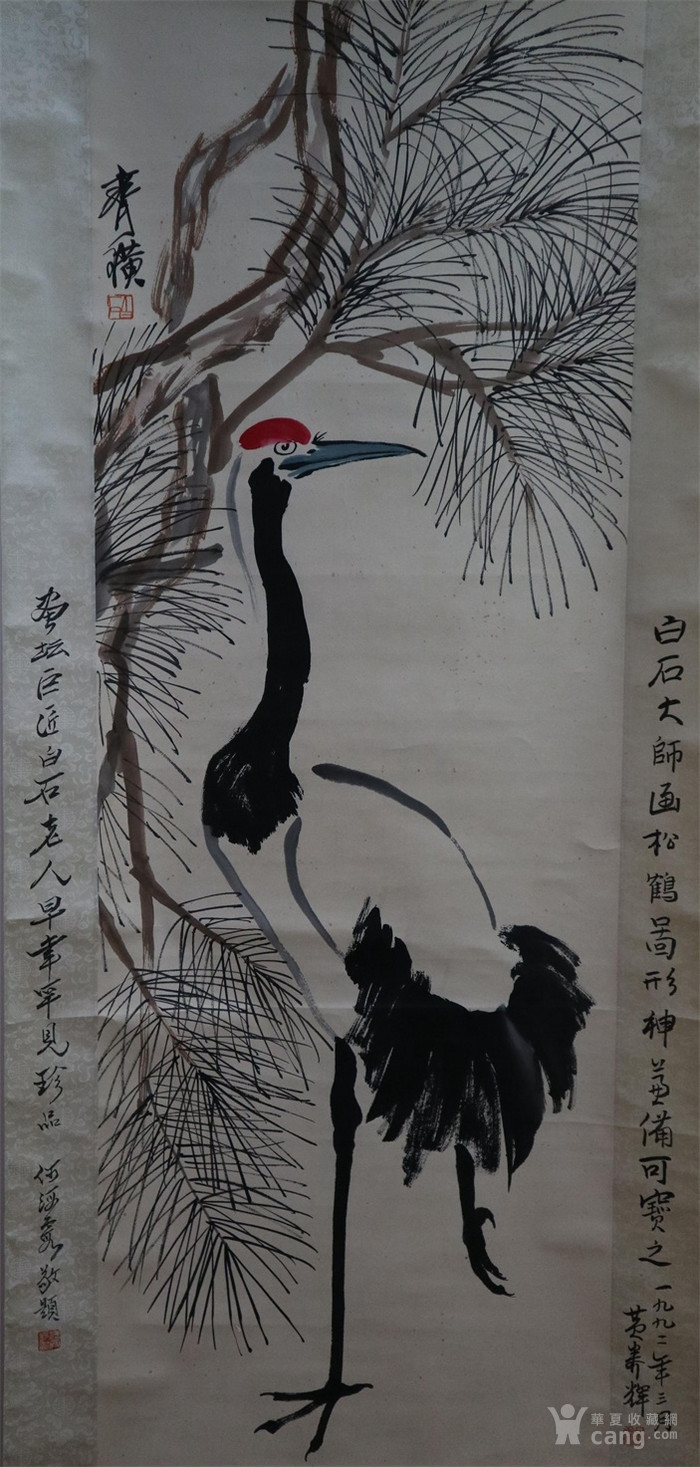 齊璜
白石大師画松鶴啚形神兼備可寶之
一九九二年三月
黄養輝
画坛巨匠白石老人早年罕見珍品
何海霞敬題
華夏收藏網
cang.com